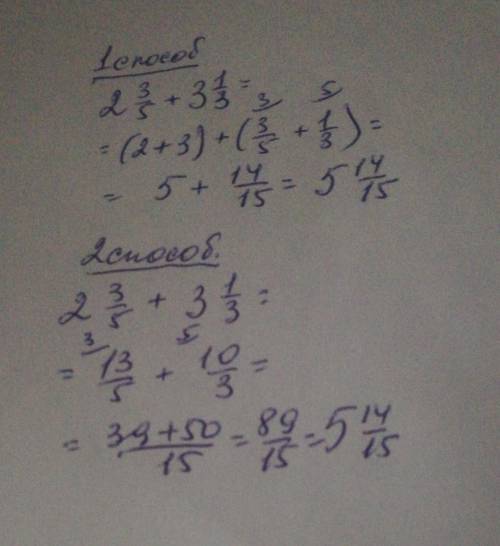 1 способ
2 3/5 + 3 1/3 =
= (2+3) + (3/5 3/ + 1/3 5/) =
= 5 + 14/15 = 5 14/15
2 способ.
2 3/5 + 3 1/3 =
= 3/ 13/5 + 5/ 10/3 =
= 39+50/15 = 89/15 = 5 14/15